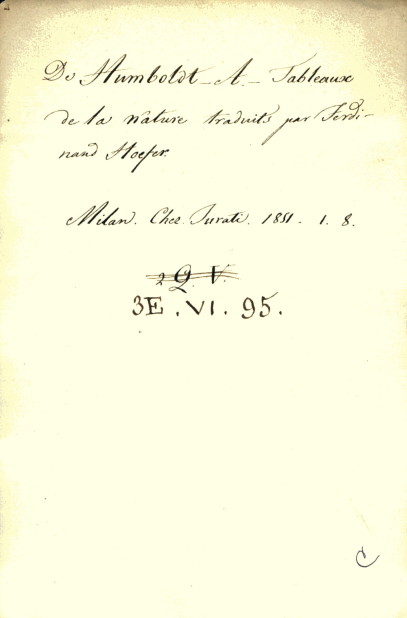 De Humboldt - A - Tableaux
de la nature traduits par Ferdi-
nand Hoefer.
Milan. Chez Turati. 1851. 1. 8.
2 Q. V.
3E . VI . 95.
C